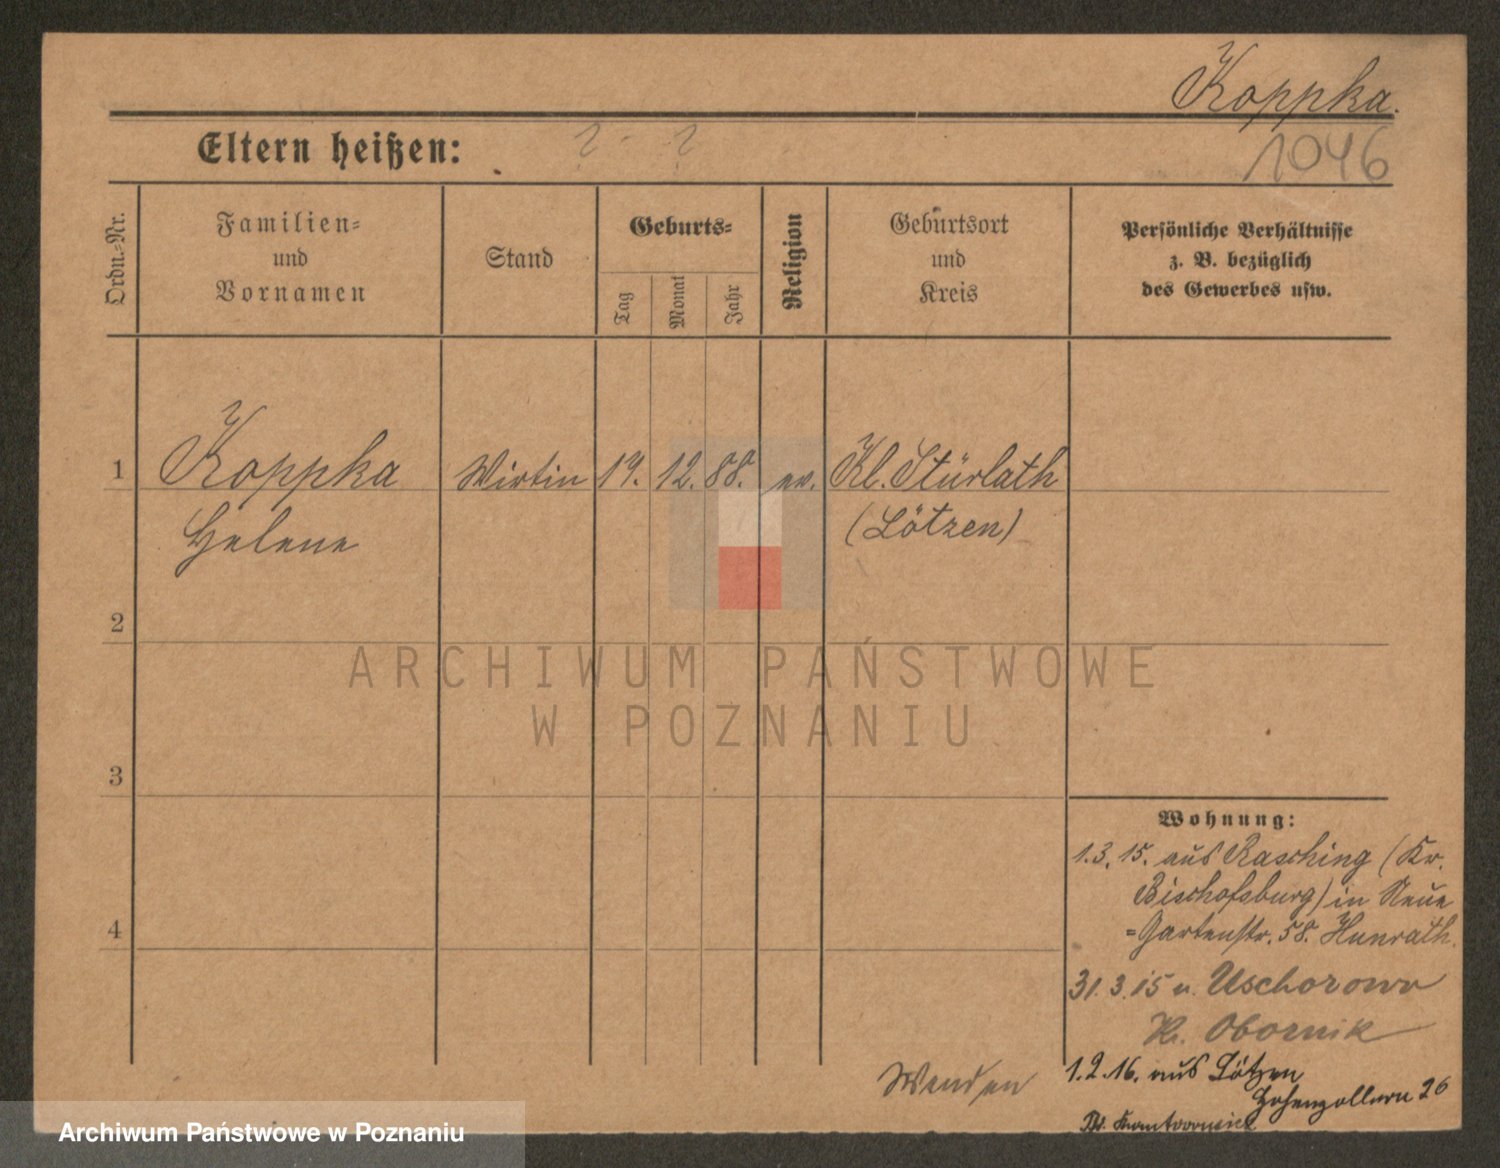 Koppka.
Eltern heißen: ? - ?
1046
Ordn.-Nr.
Familien-
und
Vornamen
Stand
Geburts-
Tag
Monat
Jahr
Religion
Geburtsort
und
Kreis
Persönliche Verhältnisse
z. B. bezüglich
des Gewerbes usw.
1 Koppka Wirtin 19. 12. 88. ev. Kl. Stürlath
Helene (Lötzen)
2
3
4
ARCHIWUM PAŃSTWOWE
W POZNANIU
Wohnung:
1.3.15. aus Rasching (Kr.
Bischofsburg) in Neue
=Gartenstr. 58. Hunrath.
31.3.15 n. Uschorowo
Kr. Obornik
1.2.16. aus Lötzen
Hohenzollern 26
Wenden
Archiwum Państwowe w Poznaniu